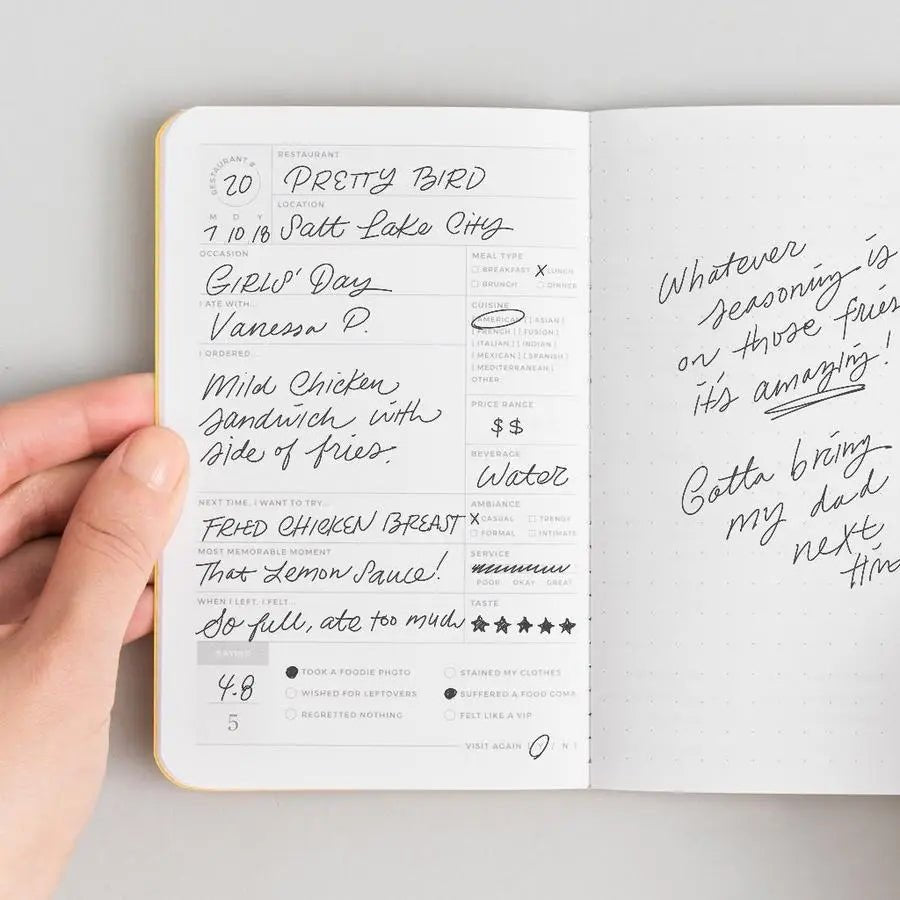 RESTAURANT #
20
RESTAURANT
PRETTY BIRD
LOCATION
M D Y
7 10 18
Salt Lake City
OCCASION
GIRLS' Day
MEAL TYPE
BREAKFAST X LUNCH
BRUNCH DINNER
I ATE WITH...
Vanessa P.
CUISINE
[ AMERICAN ] [ ASIAN ]
[ FRENCH ] [ FUSION ]
[ ITALIAN ] [ INDIAN ]
[ MEXICAN ] [ SPANISH ]
[ MEDITERRANEAN ]
OTHER
I ORDERED...
Mild Chicken
sandwich with
side of fries.
PRICE RANGE
$$
BEVERAGE
Water
NEXT TIME, I WANT TO TRY...
FRIED CHICKEN BREAST
AMBIANCE
X CASUAL TRENDY
FORMAL INTIMATE
MOST MEMORABLE MOMENT
That Lemon Sauce!
SERVICE
POOR OKAY GREAT
WHEN I LEFT, I FELT...
So full, ate too much
TASTE
RATING
4.8
5
TOOK A FOODIE PHOTO
STAINED MY CLOTHES
WISHED FOR LEFTOVERS
SUFFERED A FOOD COMA
REGRETTED NOTHING
FELT LIKE A VIP
VISIT AGAIN [ Y / N ]
Whatever
seasoning is
on those fries
it's amazing!
Gotta bring
my dad
next
tim